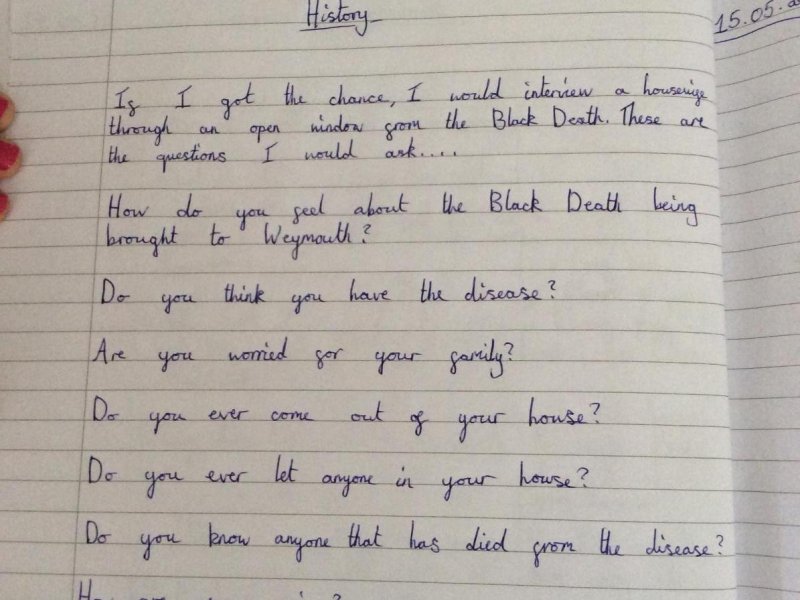 History
15.05.
If I got the chance, I would interview a housewife
through an open window from the Black Death. These are
the questions I would ask....
How do you feel about the Black Death being
brought to Weymouth?
Do you think you have the disease?
Are you worried for your family?
Do you ever come out of your house?
Do you ever let anyone in your house?
Do you know anyone that has died from the disease?